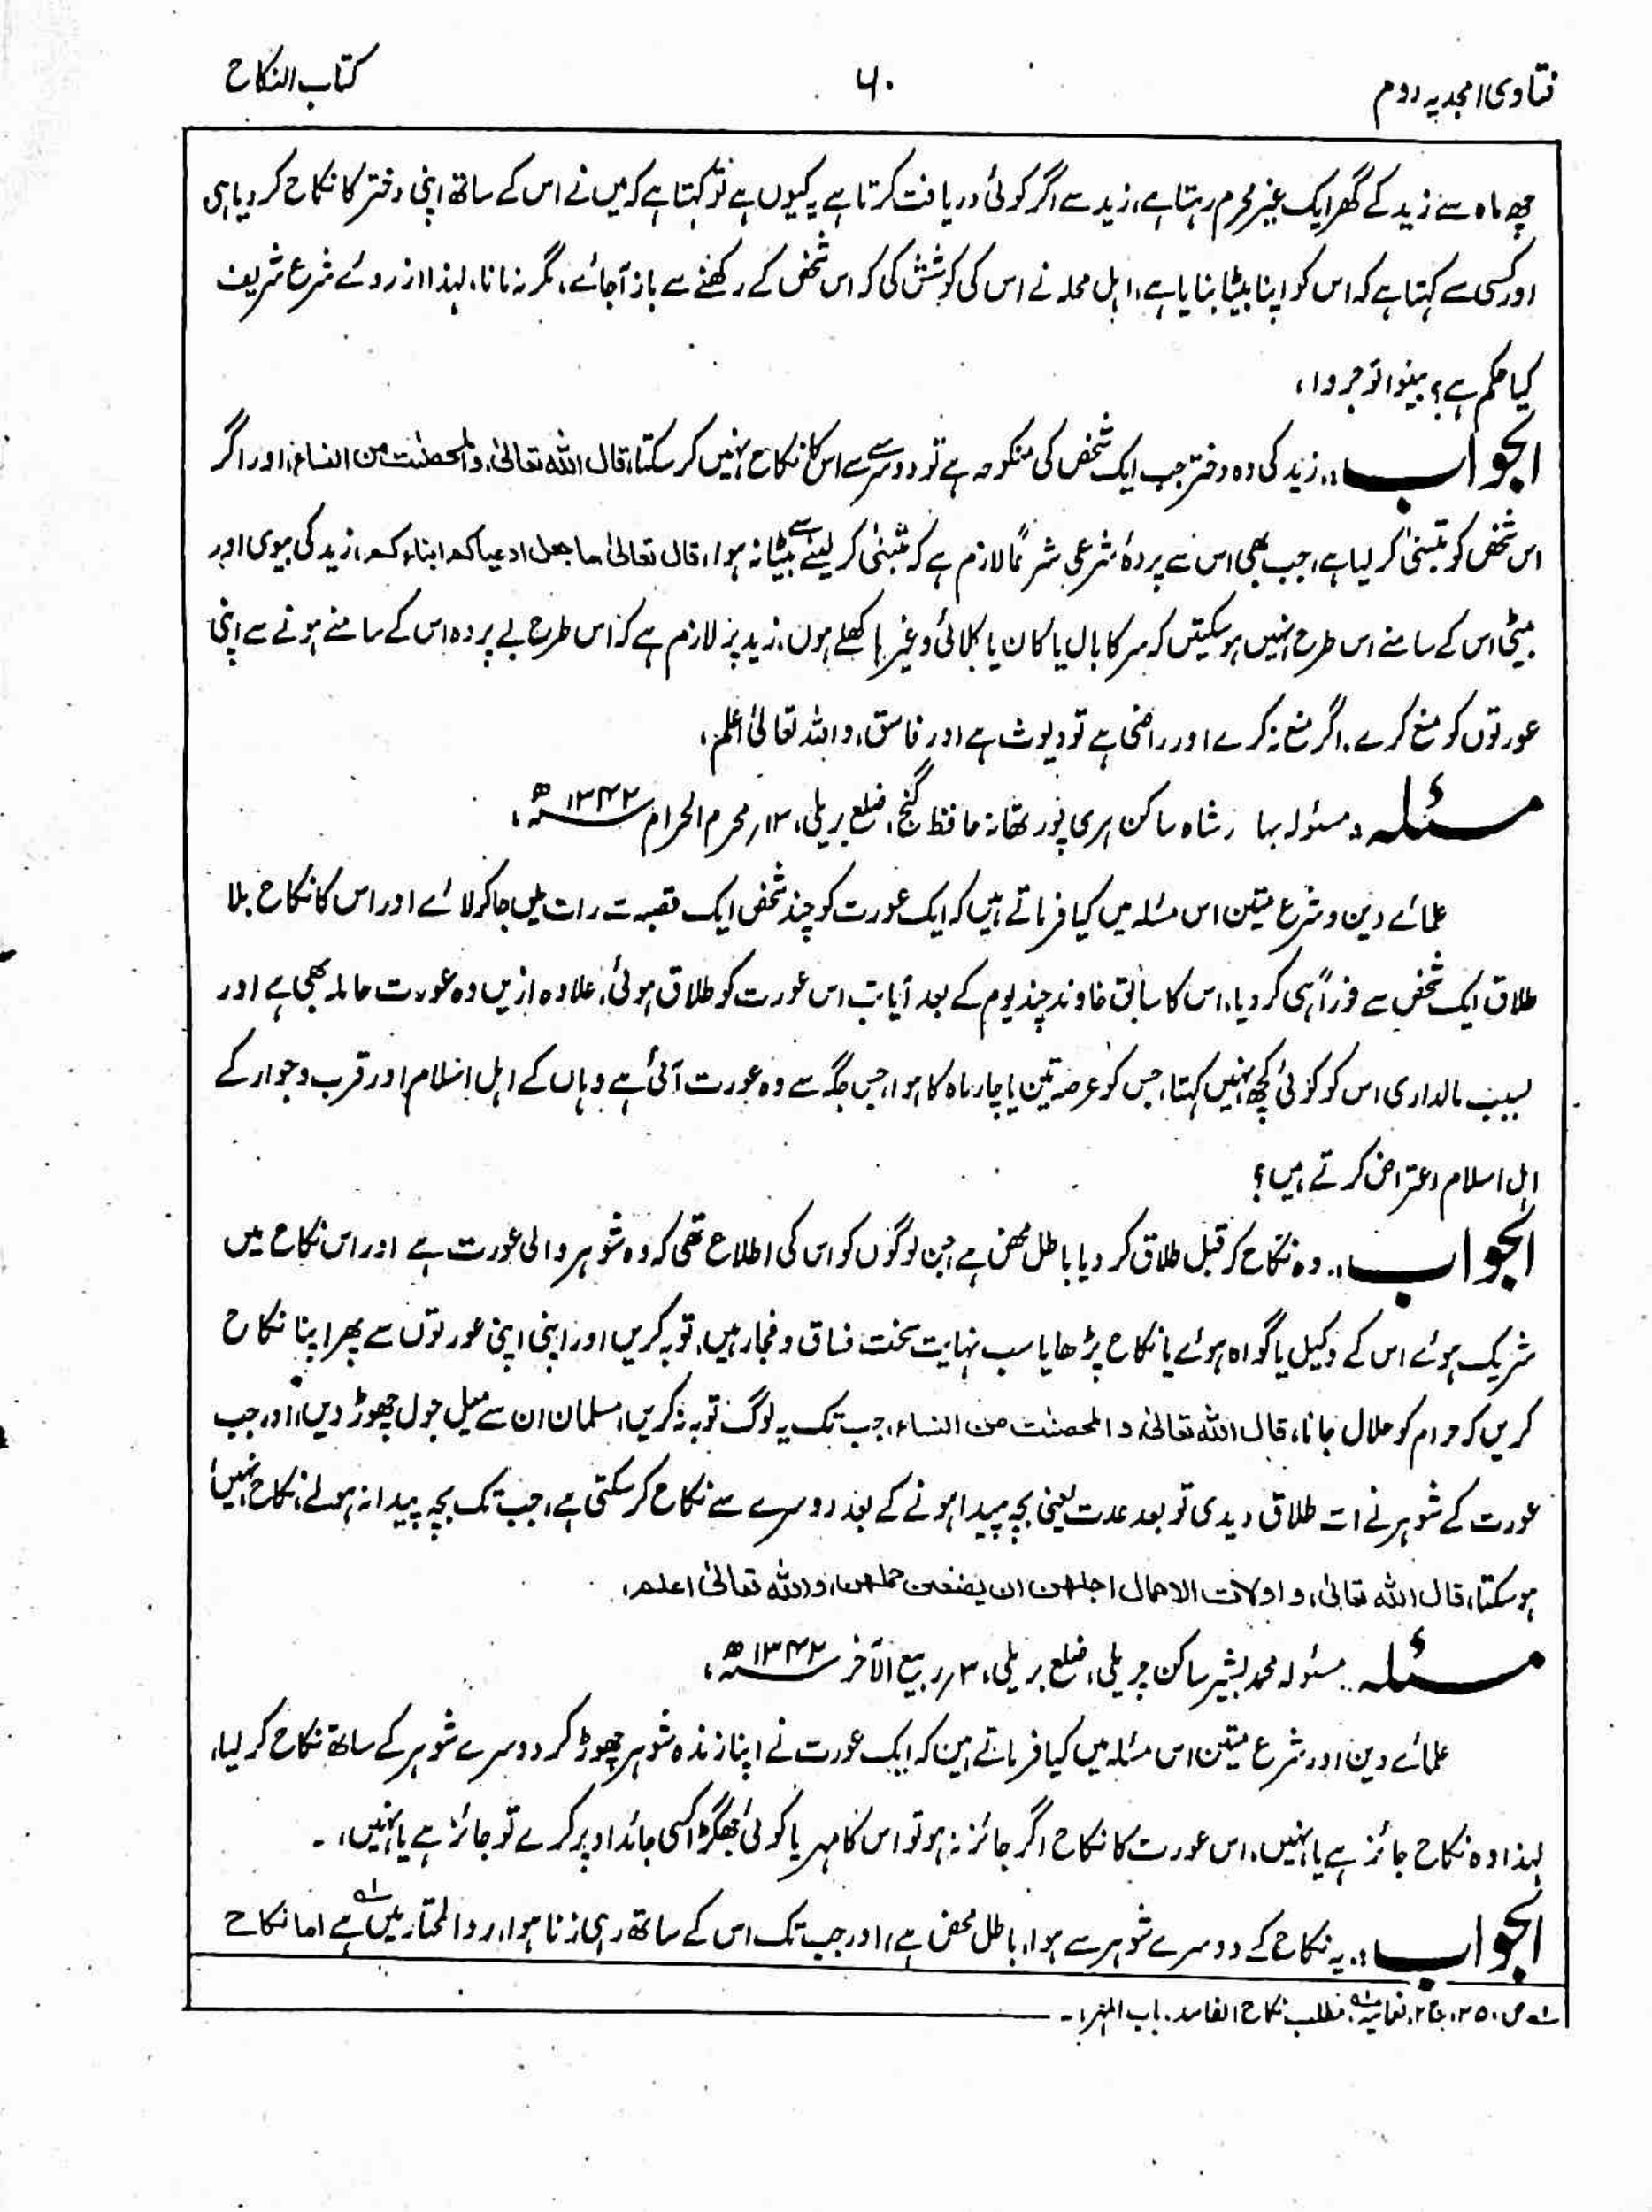 فتاویٰ امجدیہ دوم
۶۰
کتاب النکاح
چھ ماہ سے زید کے گھر ایک غیر محرم رہتا ہے، زید سے اگر کوئی دریافت کرتا ہے یہ کیوں ہے تو کہتا ہے کہ میں نے اس کے ساتھ اپنی دختر کا نکاح کر دیا ہی
اور کسی سے کہتا ہے کہ اس کو اپنا بیٹا بنایا ہے، اہل محلہ نے اس کی کوشش کی کہ اس شخص کے رکھنے سے باز آجائے، مگر نہ مانا، لہذا از روئے شرع شریف
کیا حکم ہے؟ بینوا توجروا،
الجواب :۔ زید کی وہ دختر جب ایک شخص کی منکوحہ ہے تو دوسرے سے اس کا نکاح نہیں کر سکتا، قال اللہ تعالیٰ، والمحصنٰت من النساء، اور اگر
اس شخص کو متبنیٰ کر لیا ہے، جب بھی اس سے پردۂ شرعی شرعًا لازم ہے کہ متبنیٰ کر لینے سے بیٹا نہ ہوا، قال تعالیٰ ما جعل ادعیاکم ابناءکم، زید کی بیوی اور
بیٹی اس کے سامنے اس طرح نہیں ہو سکتیں کہ سر کا بال یا کان یا کلائی وغیرہا کھلے ہوں، زید پر لازم ہے کہ اس طرح بے پردہ اس کے سامنے ہونے سے اپنی
عورتوں کو منع کرے، اگر منع نہ کرے اور راضی ہے تو دیوث ہے اور فاسق، واللہ تعالیٰ اعلم،
مسئلہ :۔ مسئولہ بہا رشاہ ساکن ہری پور تھانہ حافظ گنج، ضلع بریلی، ۱۲؍ محرم الحرام ۱۳۴۲ھ،
علمائے دین و شرع متین اس مسئلہ میں کیا فرماتے ہیں کہ ایک عورت کو چند شخص ایک قصبہ سے رات میں جا کر لائے اور اس کا نکاح بلا
طلاق ایک شخص سے فوراً ہی کر دیا، اس کا سابق خاوند چند یوم کے بعد آیا تب اس عورت کو طلاق ہوئی، علاوہ ازیں وہ عورت حاملہ بھی ہے اور
بسبب مالداری اس کو کوئی کچھ نہیں کہتا، جس کو عرصہ تین یا چار ماہ کا ہوا، جس جگہ سے وہ عورت آئی ہے وہاں کے اہل اسلام اور قرب و جوار کے
اہل اسلام اعتراض کرتے ہیں؟
الجواب :۔ وہ نکاح کہ قبل طلاق کر دیا باطل محض ہے، جن لوگوں کو اس کی اطلاع تھی کہ وہ شوہر والی عورت ہے اور اس نکاح میں
شریک ہوئے اس کے وکیل یا گواہ ہوئے یا نکاح پڑھایا سب نہایت سخت فساق و فجار ہیں، توبہ کریں اور اپنی اپنی عورتوں سے پھر اپنا نکاح
کریں کہ حرام کو حلال جانا، قال اللہ تعالیٰ، والمحصنٰت من النساء، جب تک یہ لوگ توبہ نہ کریں، مسلمان ان سے میل جول چھوڑ دیں، اور جب
عورت کے شوہر نے اسے طلاق دیدی تو بعد عدت یعنی بچہ پیدا ہونے کے بعد دوسرے سے نکاح کر سکتی ہے، جب تک بچہ پیدا نہ ہولے نکاح نہیں
ہو سکتا، قال اللہ تعالیٰ، و اولات الاحمال اجلھن ان یضعن حملھن، واللہ تعالیٰ اعلم،
مسئلہ :۔ مسئولہ محمد بشیر ساکن چریلی، ضلع بریلی، ۳؍ ربیع الآخر ۱۳۴۲ھ،
علمائے دین اور شرع متین اس مسئلہ میں کیا فرماتے ہین کہ ایک عورت نے اپنا زندہ شوہر چھوڑ کر دوسرے شوہر کے ساتھ نکاح کر لیا،
لہذا وہ نکاح جائز ہے یا نہیں، اس عورت کا نکاح اگر جائز نہ ہو تو اس کا مہر یا کوئی جھگڑا کسی جائداد پر کرے تو جائز ہے یا نہیں، ۔
الجواب :۔ یہ نکاح کے دوسرے شوہر سے ہوا، باطل محض ہے، اور جب تک اس کے ساتھ رہی زنا ہوا، رد المحتار میں ہے لہ اما نکاح
لہ ص ۳۵۰، ج ۲، نعمانیہ، مطلب نکاح الفاسد، باب المہر، ۔